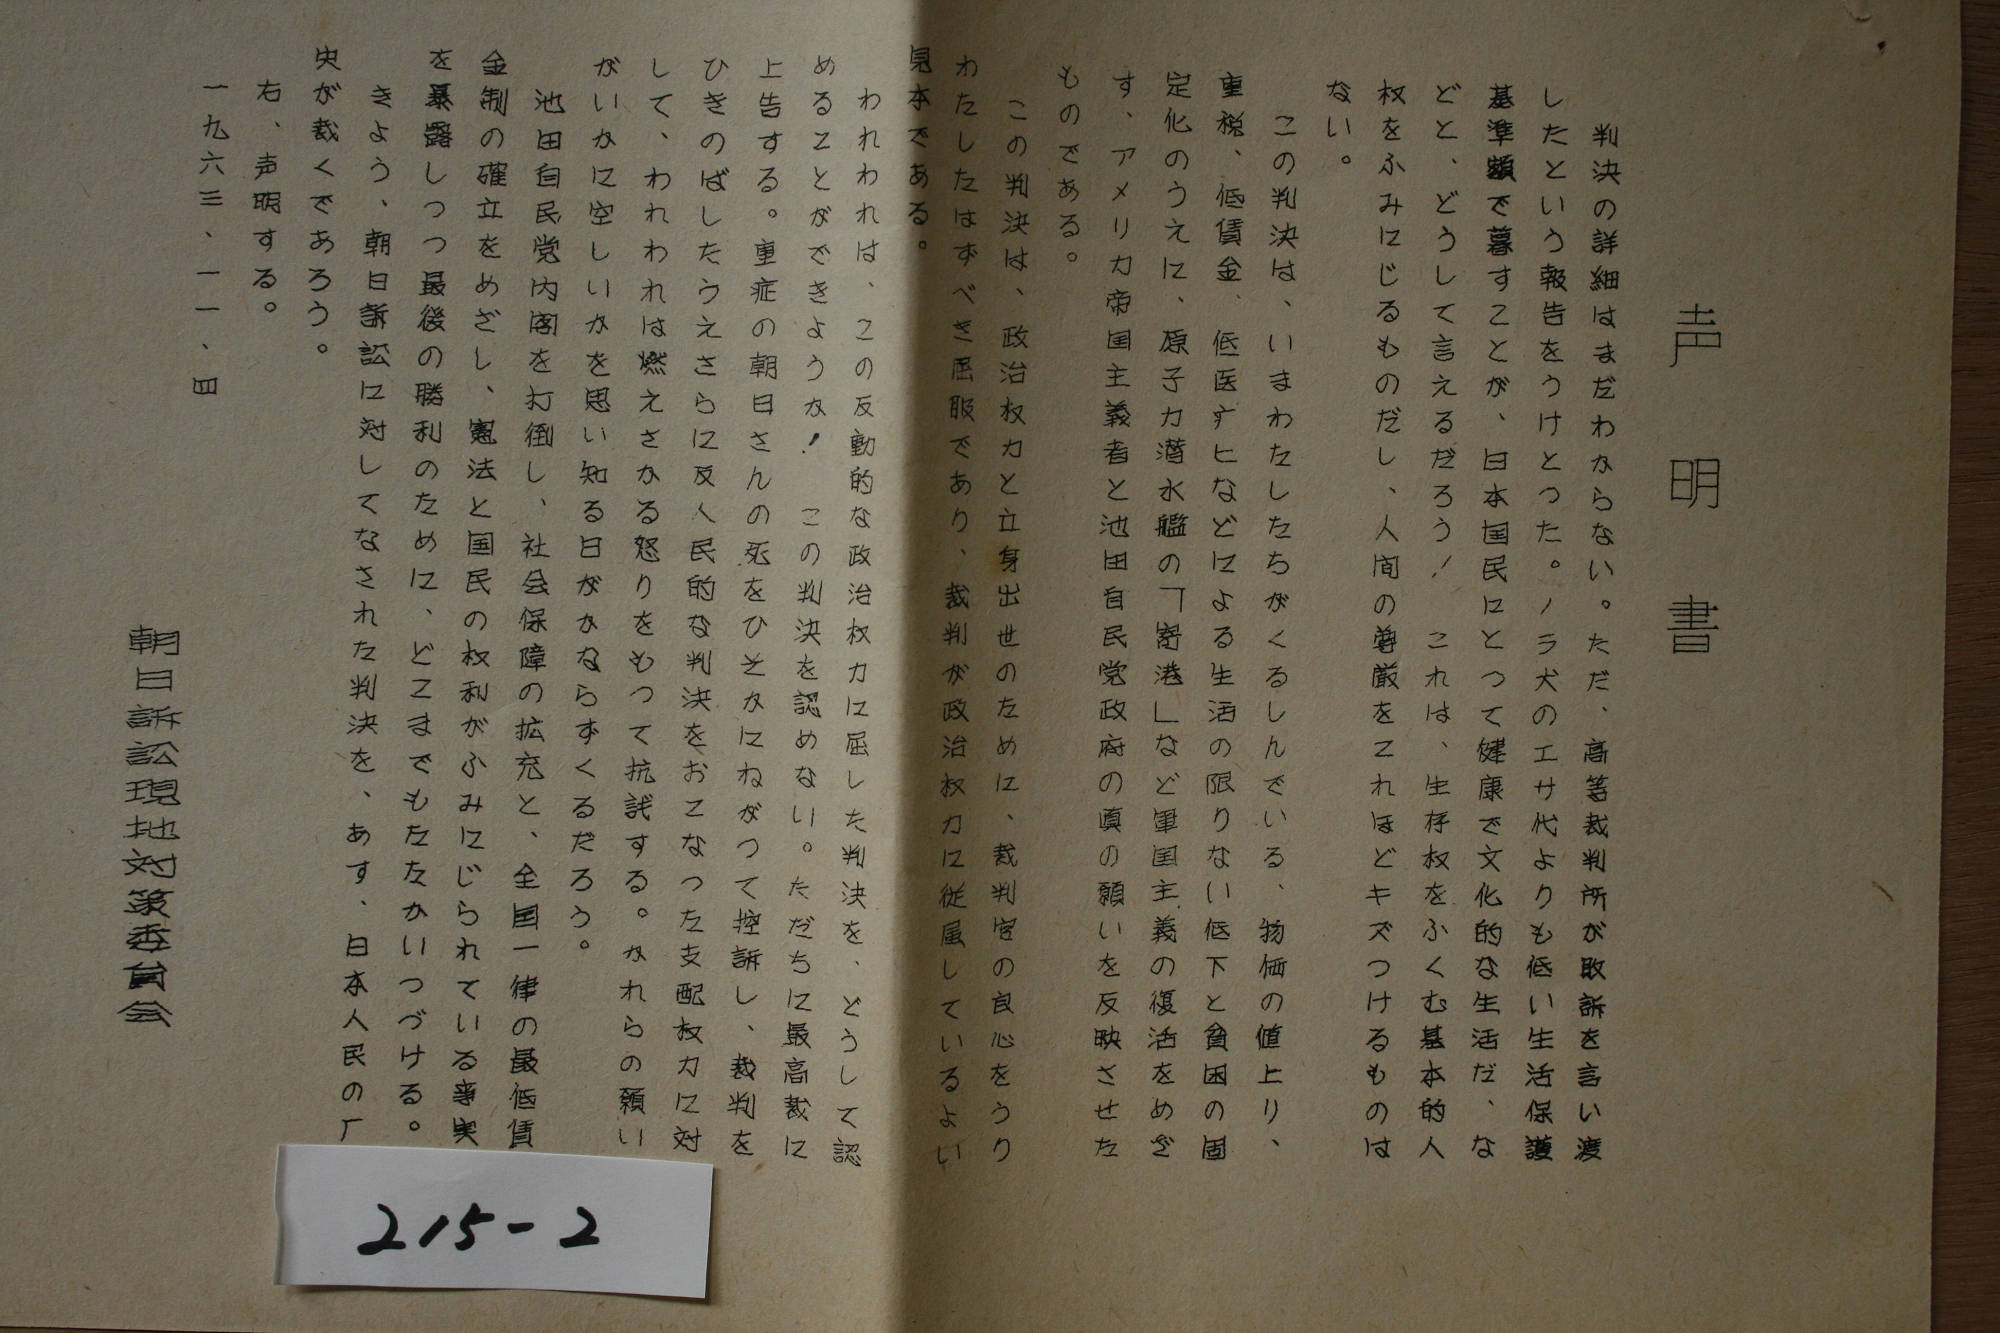 声明書
判決の詳細はまだわからない。ただ、高等裁判所が敗訴を言い渡
したという報告をうけとった。ノラ犬のエサ代よりも低い生活保護
基準額で暮すことが、日本国民にとって健康で文化的な生活だ、な
どと、どうして言えるだろう！これは、生存权をふくむ基本的人
权をふみにじるものだし、人间の尊厳をこれほどキズつけるものは
ない。
この判決は、いまわたしたちがくるしんでいる、物価の値上り、
重税、低賃金、低医疗ヒなどによる生活の限りない低下と貧困の固
定化のうえに、原子力潜水艦の「寄港」など軍国主義の復活をめざ
す、アメリカ帝国主義者と池田自民党政府の真の願いを反映させた
ものである。
この判決は、政治权力と立身出世のために、裁判官の良心をうり
わたしたはずべき屈服であり、裁判が政治权力に従属しているよい
見本である。
われわれは、この反動的な政治权力に屈した判決を、どうして認
めることができようか！この判決を認めない。ただちに最高裁に
上告する。重症の朝日さんの死をひそかにねがって控訴し、裁判を
ひきのばしたうえさらに反人民的な判決をおこなった支配权力に対
して、われわれは燃えさかる怒りをもって抗議する。かれらの願い
がいかに空しいかを思い知る日がかならずくるだろう。
池田自民党内閣を打倒し、社会保障の拡充と、全国一律の最低賃
金制の確立をめざし、憲法と国民の权利がふみにじられている事実
を暴露しつつ最後の勝利のために、どこまでもたたかいつづける。
きよう、朝日訴訟に対してなされた判決を、あす、日本人民の厂
史が裁くであろう。
右、声明する。
一九六三、一一、四
朝日訴訟現地対策委員会
215-2